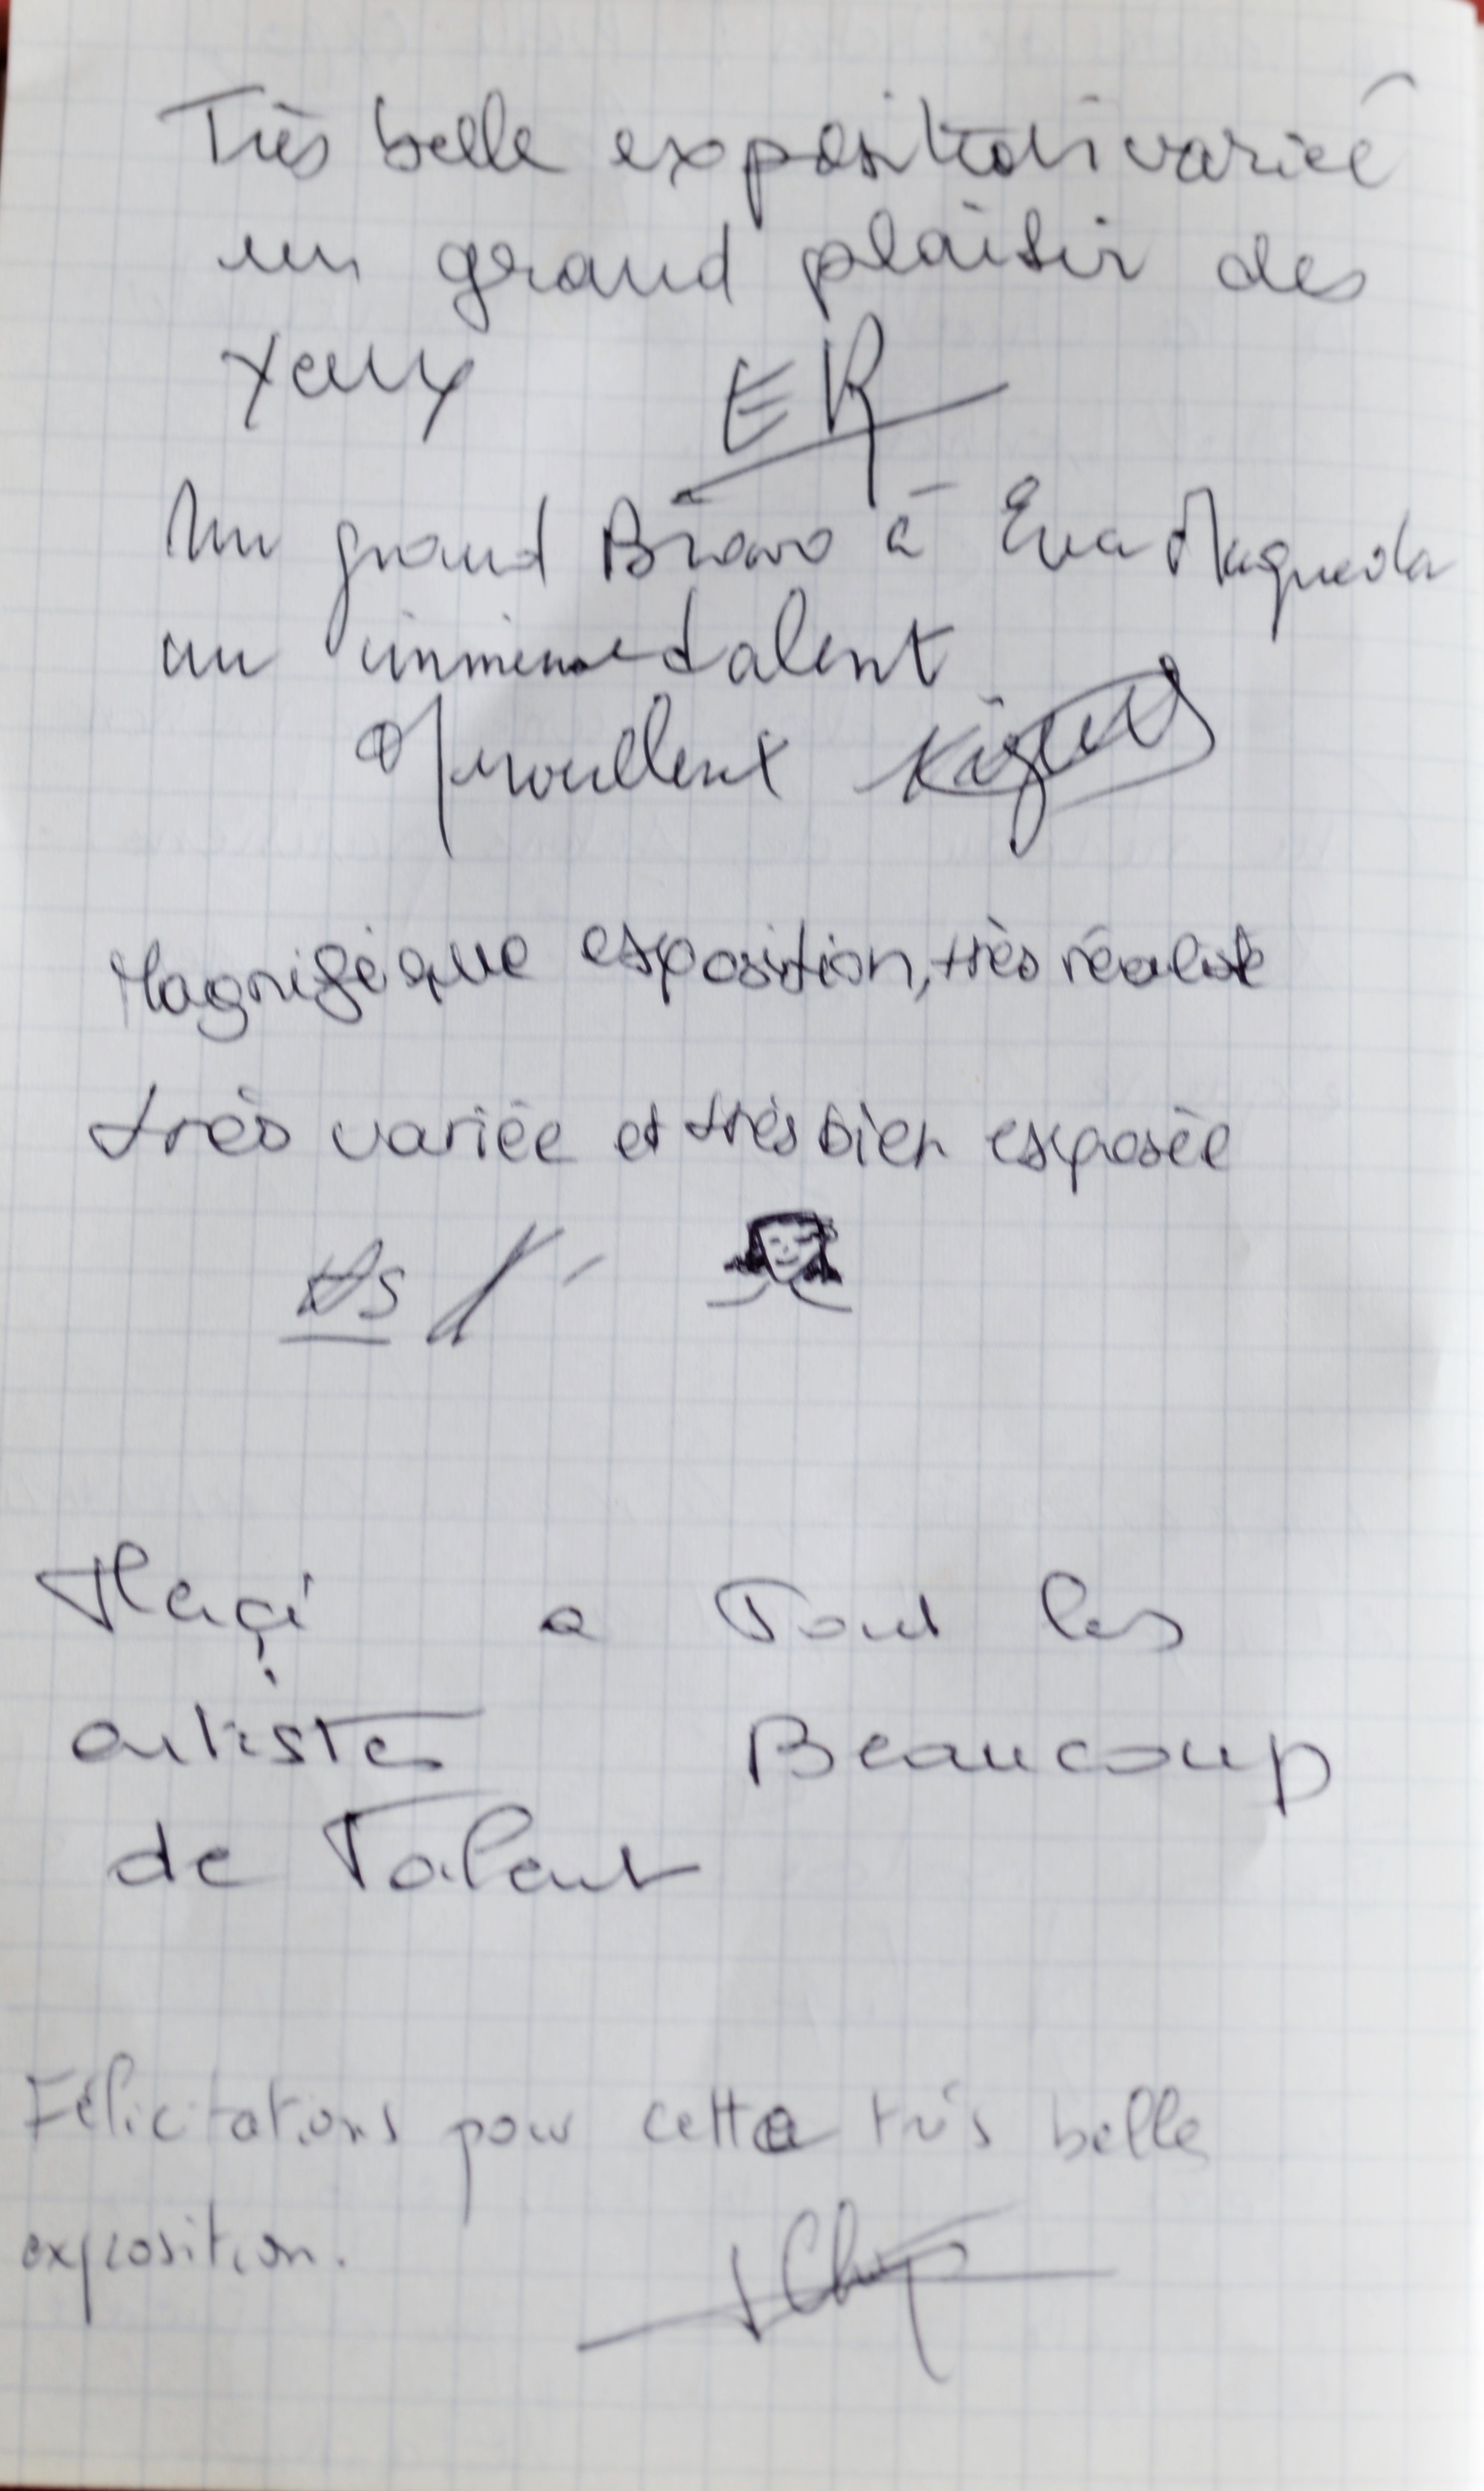 Très belle exposition variée
un grand plaisir des
yeux ER
Un grand Bravo à Eva
un immense talent
Magnifique exposition, très réaliste
très variée et très bien exposée
Merçi a Tout les
artistes Beaucoup
de Talent
Félicitations pour cette très belle
exposition.